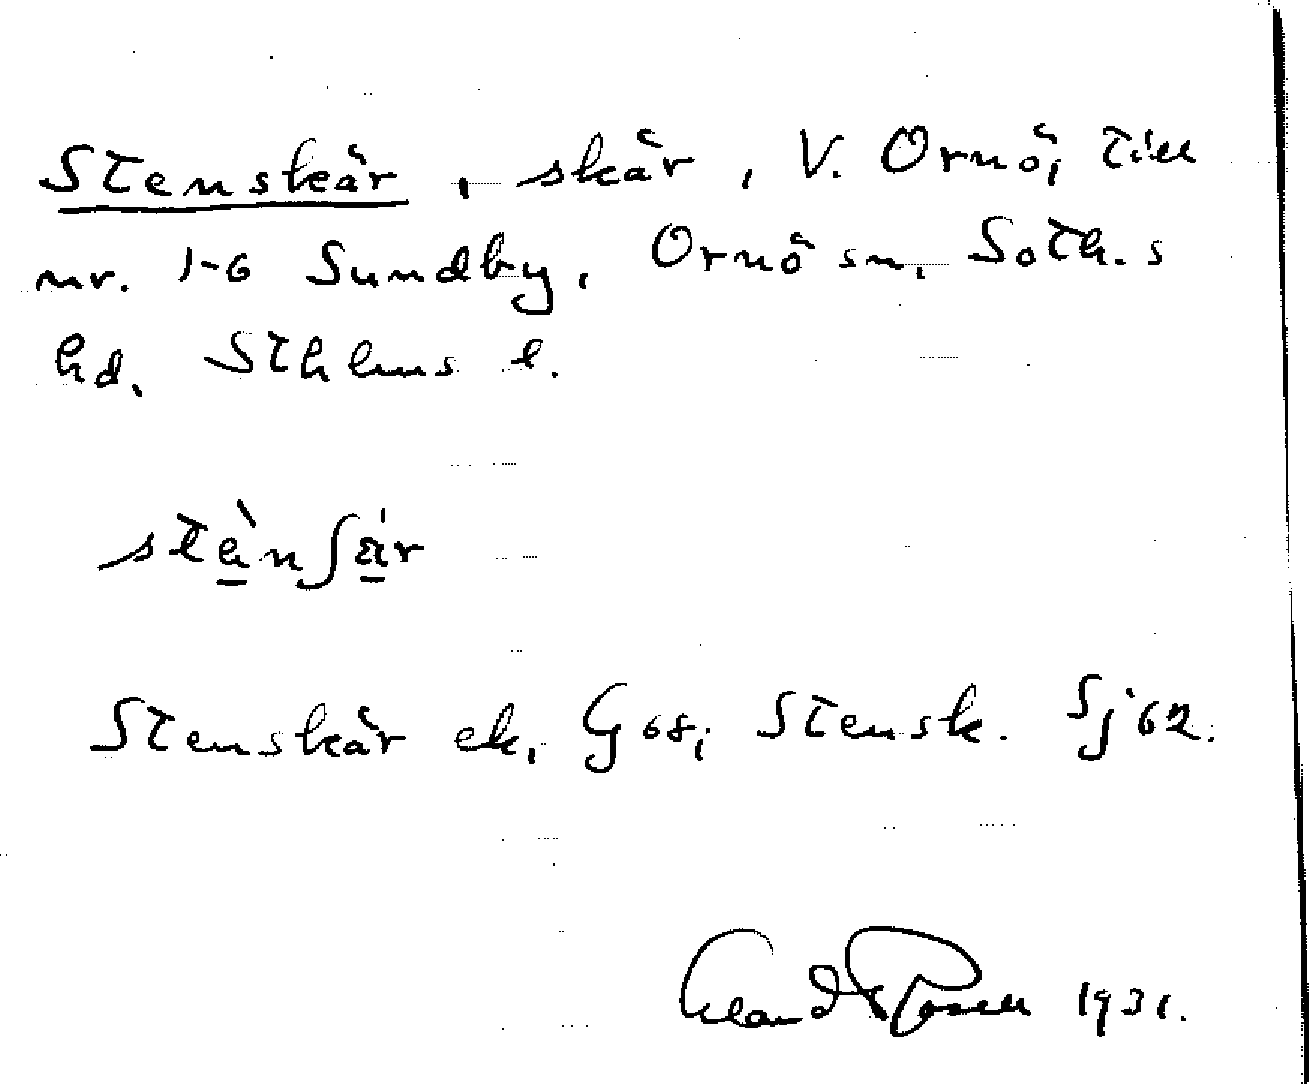 Stenskär, skär, V. Ornö, till
nr. 1-6 Sundby, Ornö sn, Soth.s
hd. Sthlms l.
stè̱nʃá̱r
Stenskär ek, G68; Stensk. Sj 62.
1931.